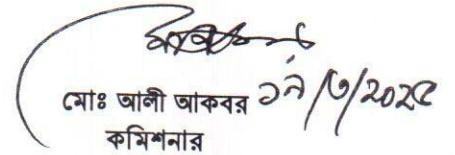 মোঃ আলী আকবর ১৯/৩/২০২৫
কমিশনার